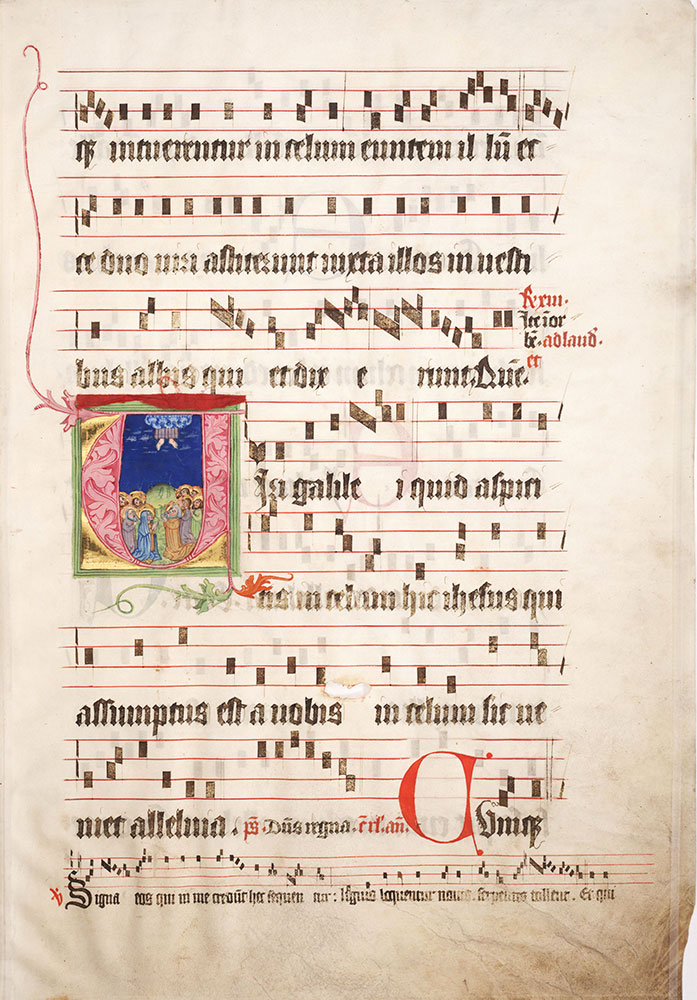 q3 intuerentur in celum euntem il lū et
ce duo viri astiterunt iuxta illos in vesti
bus albis qui et dix e runt. Qūe.
et
ad laud'.
Viri galile i quid aspici
tis in celum hic ihesus qui
assumptus est a vobis in celum sic ve
niet alleluia. ps Dn̄s regna. añ. Cumq3
Signa eos qui in me credūt hec sequen tur: linguis loquentur nouis. serpentes tollent. Et qui